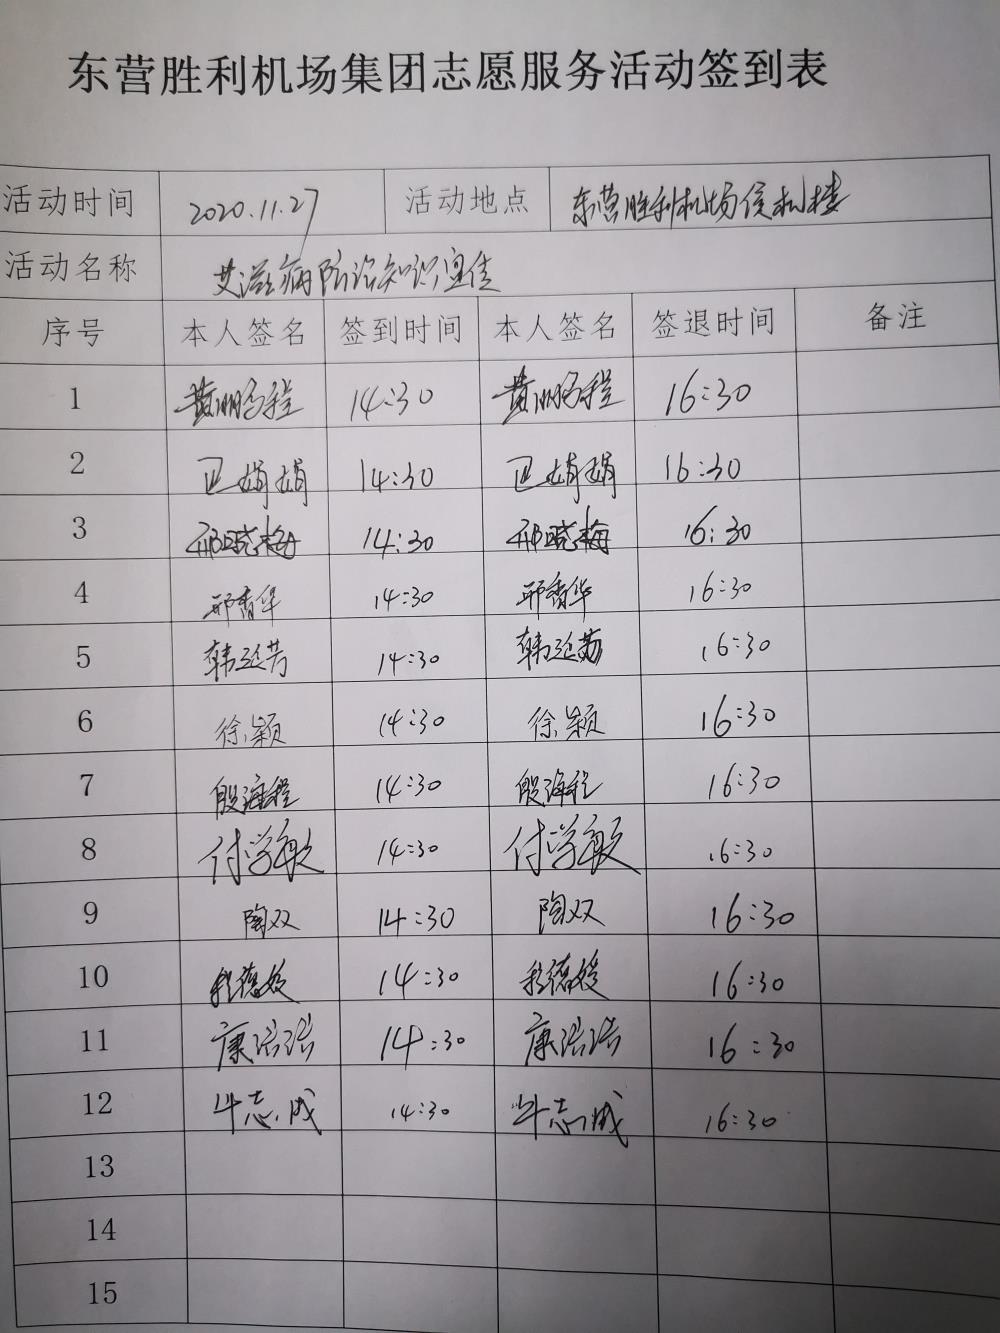 东营胜利机场集团志愿服务活动签到表
活动时间 2020.11.27 活动地点 东营胜利机场候机楼
活动名称 艾滋病防治知识宣传
序号 本人签名 签到时间 本人签名 签退时间 备注
1 黄鹏程 14:30 黄鹏程 16:30
2 卫娟娟 14:30 卫娟娟 16:30
3 邢晓梅 14:30 邢晓梅 16:30
4 邢香华 14:30 邢香华 16:30
5 韩延芳 14:30 韩延芳 16:30
6 徐颖 14:30 徐颖 16:30
7 殷海程 14:30 殷海程 16:30
8 付学敏 14:30 付学敏 16:30
9 陶双 14:30 陶双 16:30
10 程德姣 14:30 程德姣 16:30
11 康洁洁 14:30 康洁洁 16:30
12 牛志成 14:30 牛志成 16:30
13
14
15